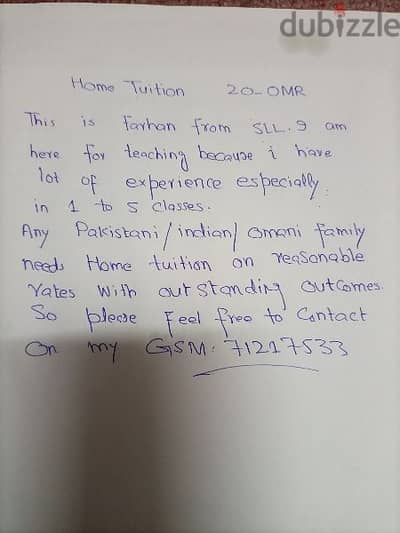 dubizzle
Home Tuition 20-OMR
This is Farhan from SLL. I am
here for teaching because i have
lot of experience especially
in 1 to 5 classes.
Any Pakistani/indian/omani family
needs Home tuition on reasonable
rates with outstanding outcomes.
So please feel free to Contact
On my GSM: 71217533